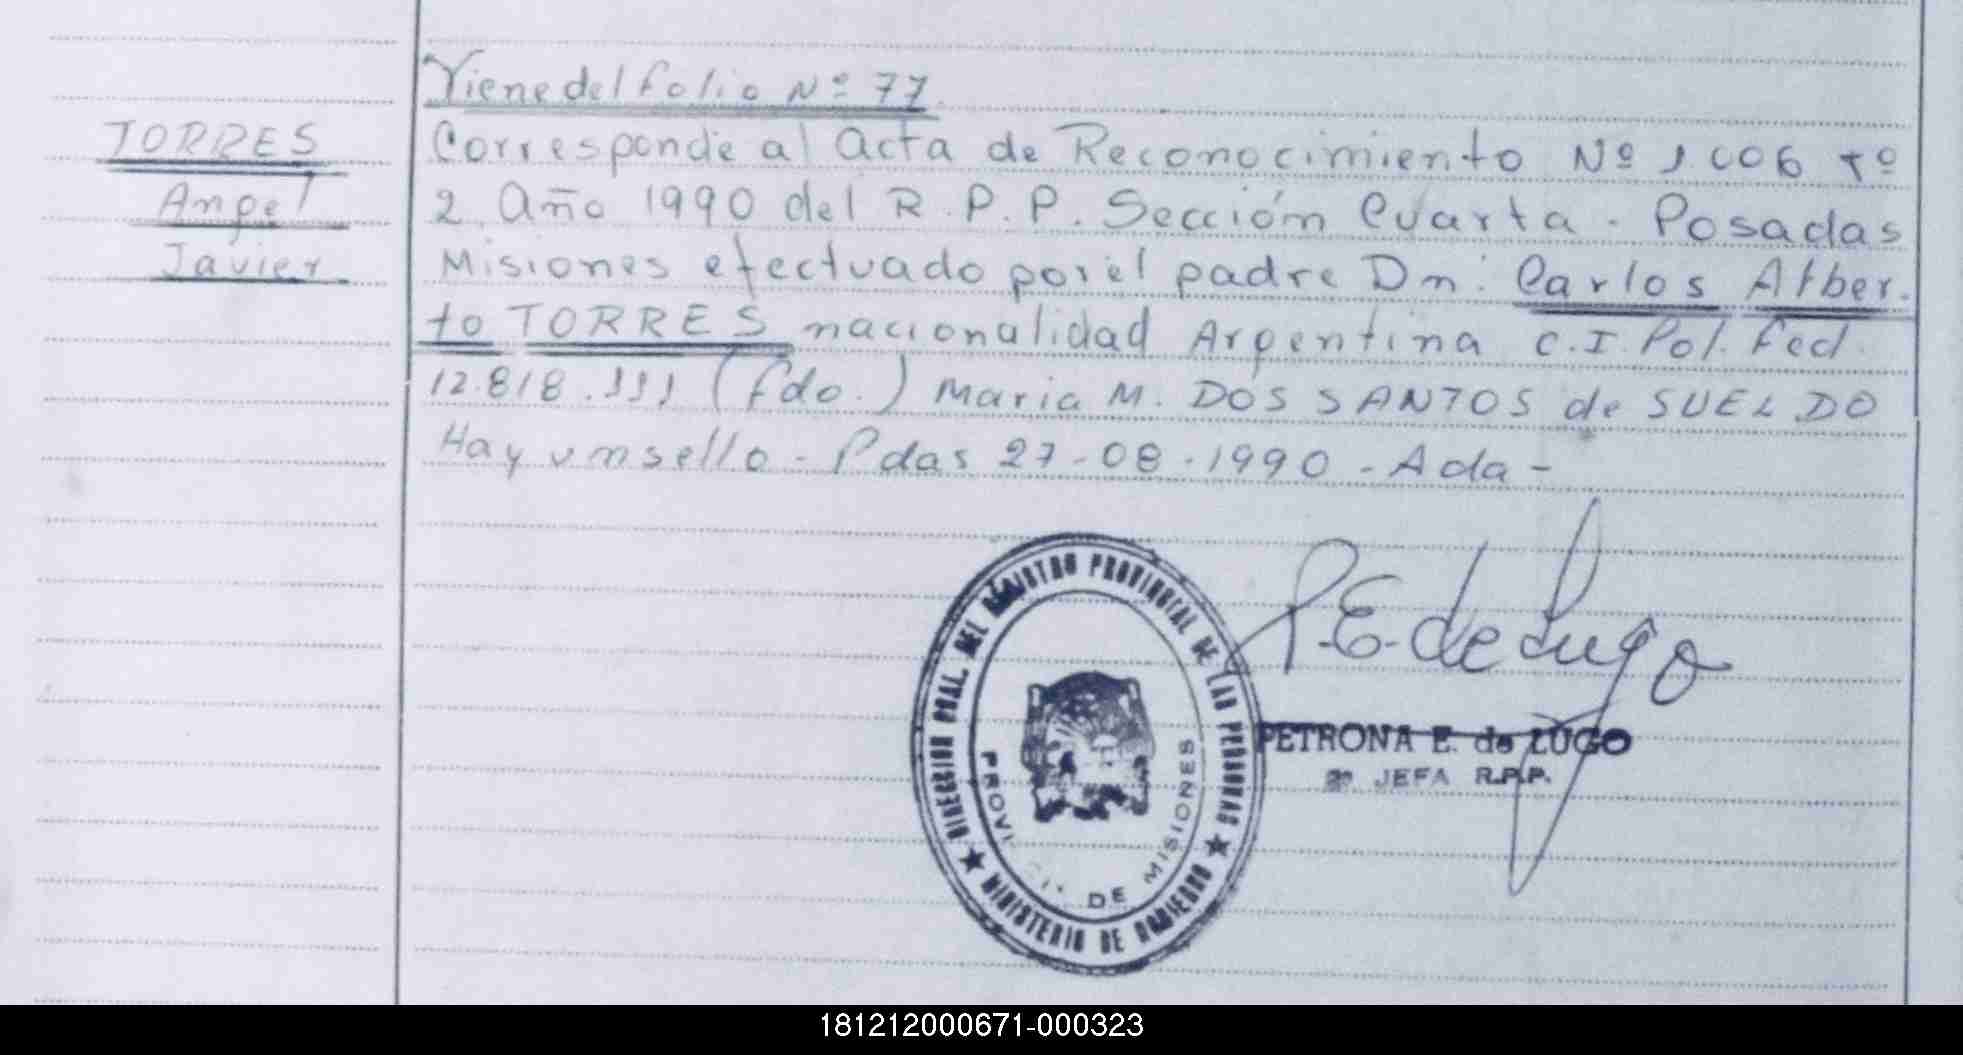 Viene del folio Nº 77
TORRES
Angel
Javier
Corresponde al Acta de Reconocimiento Nº 1.006 Tº
2 Año 1990 del R.P.P. Sección Cuarta - Posadas
Misiones efectuado por el padre Dn: Carlos Alber-
to TORRES nacionalidad Argentina C.I. Pol. Fed.
12.818.111 (fdo.) Maria M. DOS SANTOS de SUELDO
Hay un sello - Pdas 27-08-1990 - Ada -
DIRECCION GRAL. DEL REGISTRO PROVINCIAL DE LAS PERSONAS
★ MINISTERIO DE GOBIERNO ★
PROVINCIA DE MISIONES
P.E. de Lugo
PETRONA E. de LUGO
2ª JEFA R.P.P.
181212000671-000323